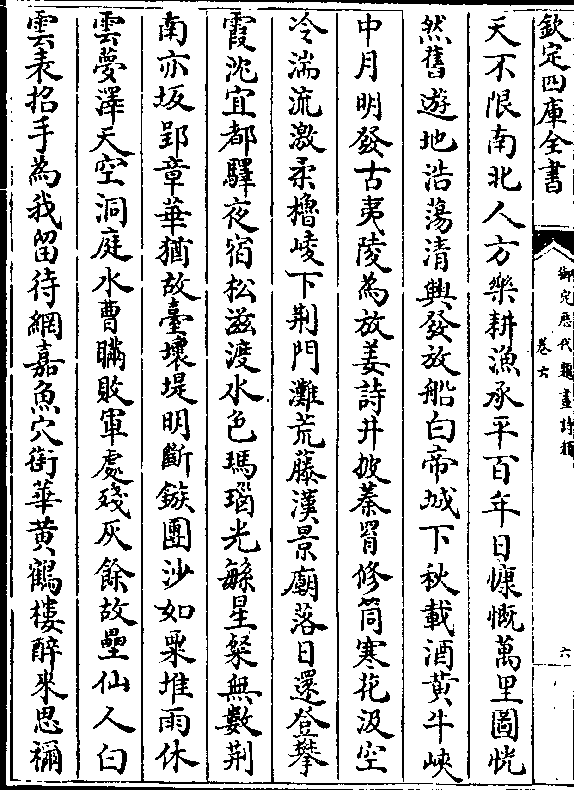 欽定四庫全書
御定歷代題畫詩類
卷六
六
天不限南北人方樂耕漁承平百年日慷慨萬里圖恍
然舊遊地浩蕩清興發放船白帝城下秋載酒黃牛峽
中月明發古夷陵為放姜詩井披蓁胥修筒寒花汲空
冷湍流激柔櫓崚下荆門灘荒藤漢景廟落日還登攀
霞沈宜都驛夜宿松滋渡水色瑪瑙光繇星粲無數荆
南亦坂郢章華猶故臺壞堤明斷鏃團沙如粟堆雨休
雲夢澤天空洞庭水曹瞞敗軍處殘灰餘故壘仙人白
雲表招手為我留待網嘉魚穴銜華黄鶴樓醉來思禰